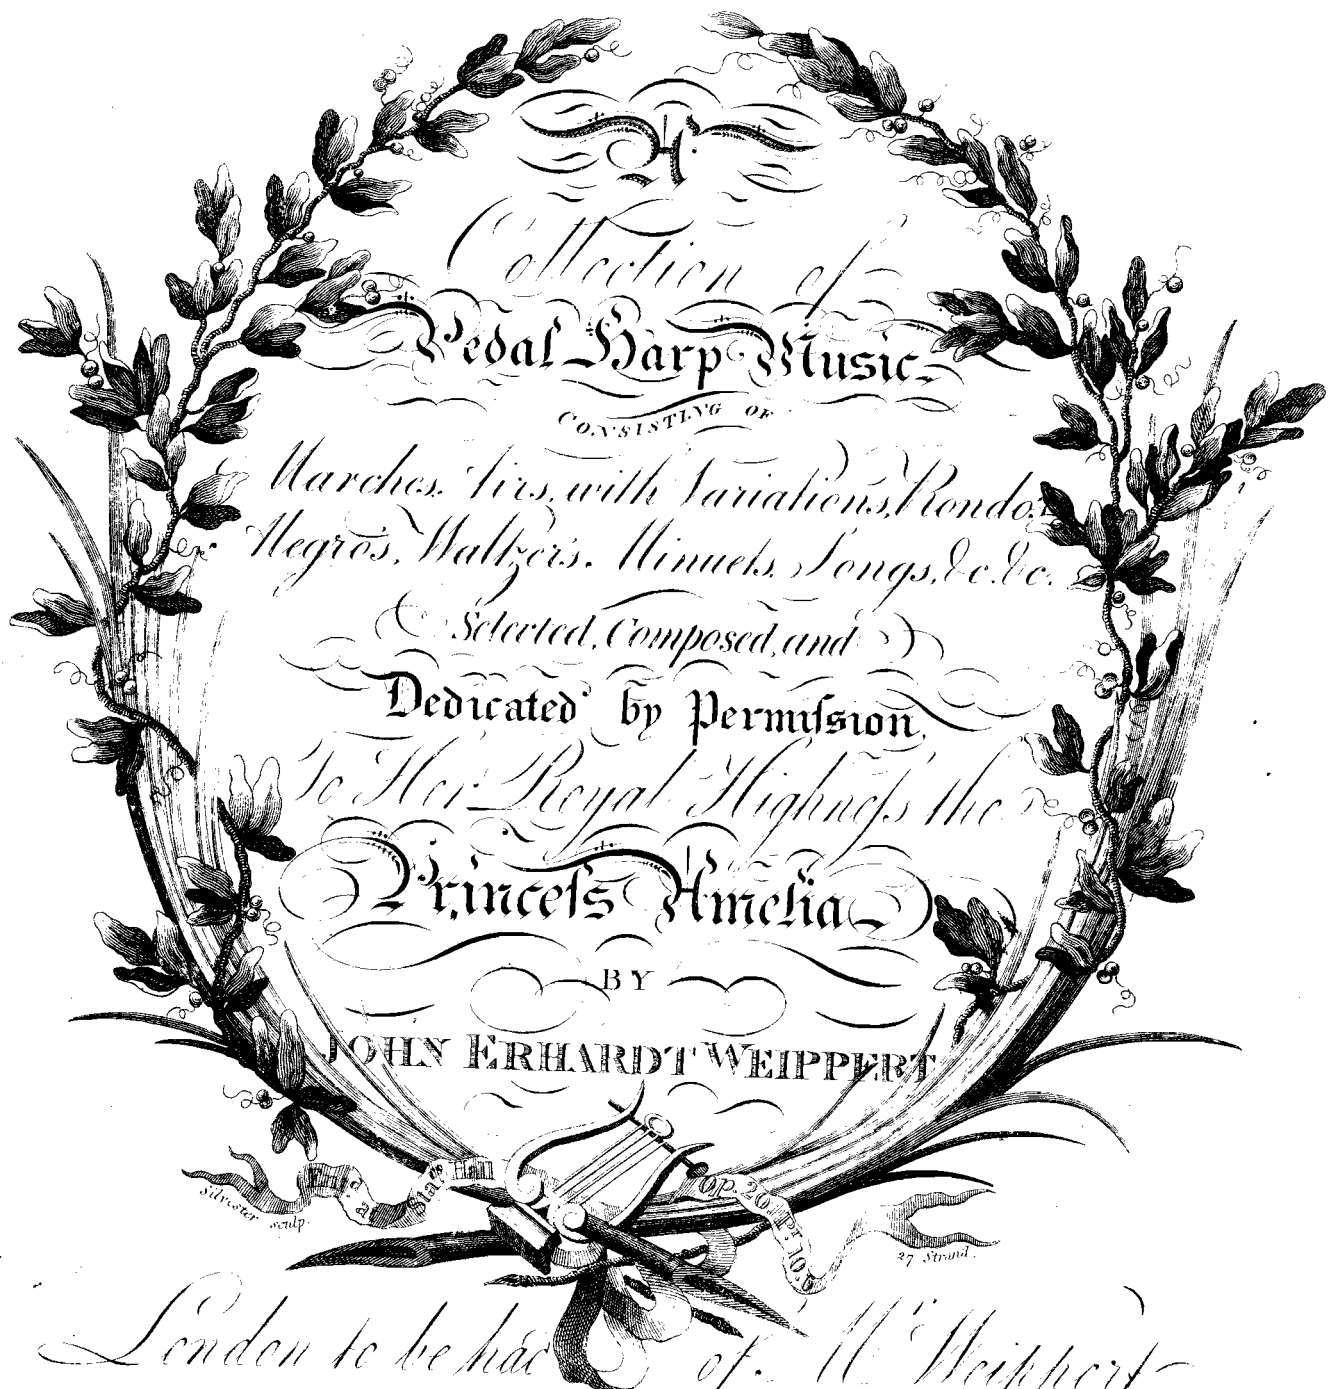 A
Collection of
Pedal Harp Music
CONSISTING OF
Marches, Airs, with Variations, Rondos,
Allegro's, Waltzer's, Minuets, Songs, &c. &c.
Selected, Composed, and
Dedicated by Permiſsion,
To Her Royal Highneſs the
Princeſs Amelia
BY
JOHN ERHARDT WEIPPERT
Ent.d at Sta.s Hall
Op. 20 Pr. 10.6
Silvester sculp.
27 Strand.
London to be had of Mr. Weippert